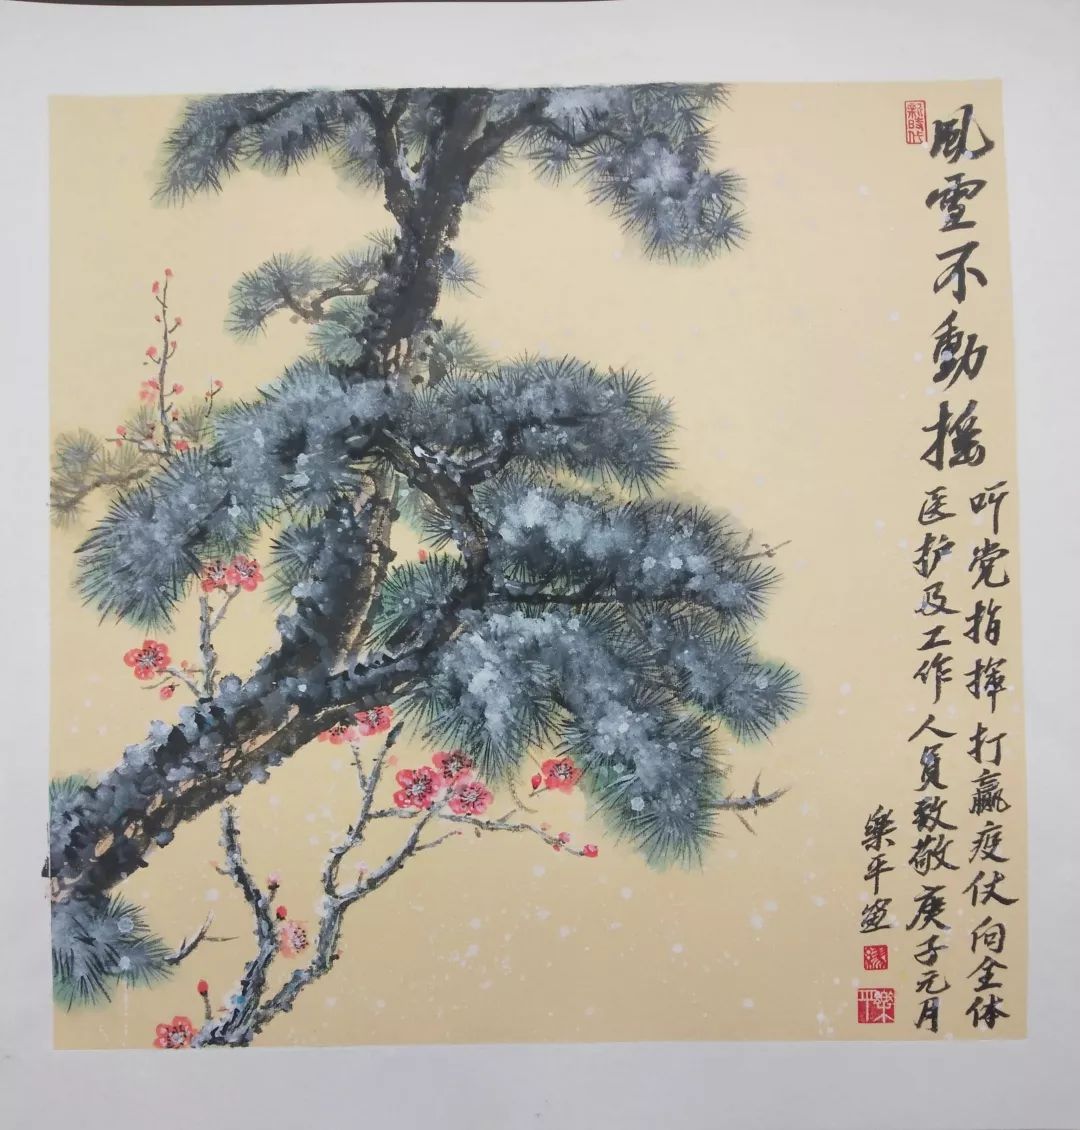 風雪不動摇
听党指挥打赢疫仗向全体
医护及工作人员致敬庚子元月
樂平画
樂平